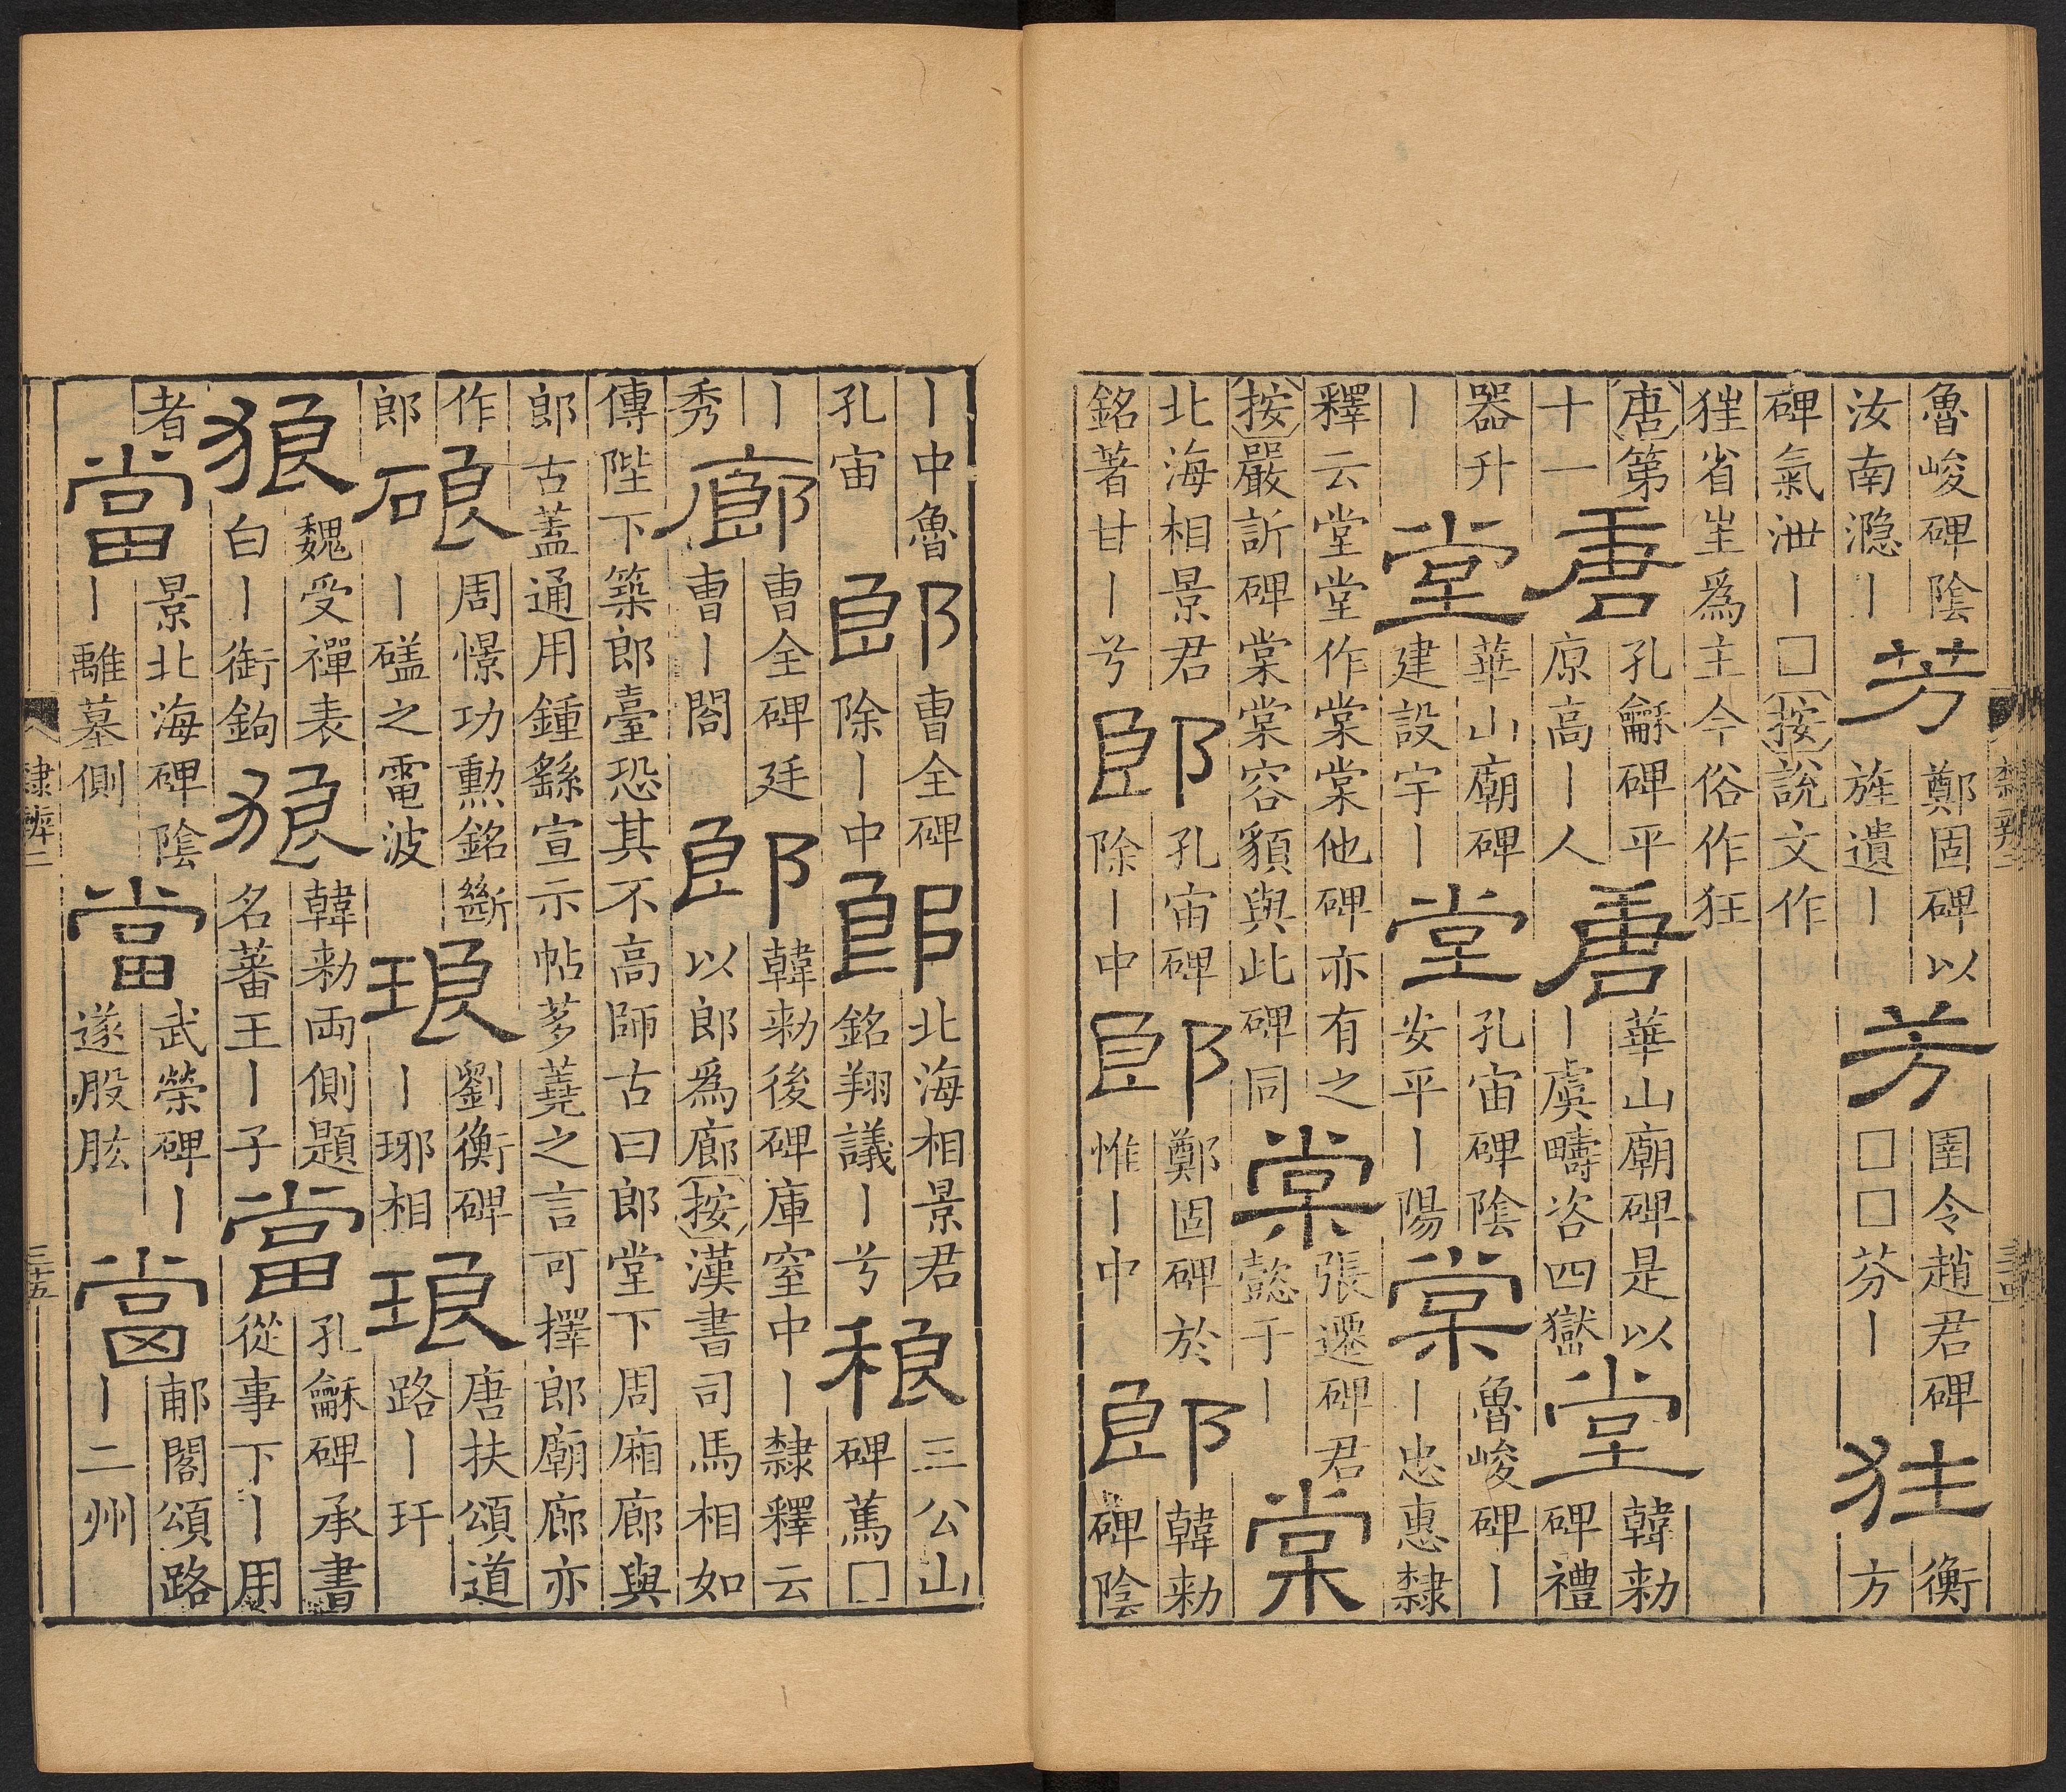 魯峻碑陰汝南㶏丨芳鄭固碑以旌遺丨芳圉令趙君碑□□芬丨狂衡方
碑氣泄丨□按說文作狌省㞷爲主今俗作狂
唐第十一唐孔龢碑平原高丨人唐華山廟碑是以丨虞疇咨四嶽堂韓勑碑禮
器升丨堂華山廟碑建設宇丨堂孔宙碑陰安平丨陽棠魯峻碑丨丨忠惠隸
釋云堂堂作棠棠他碑亦有之按嚴訢碑棠棠容貌與此碑同棠張遷碑君懿于丨棠
北海相景君銘著甘丨兮郎孔宙碑除丨中郎鄭固碑於惟丨中郎韓勑碑陰
丨中魯孔宙郎曹全碑除丨中郎北海相景君銘翔議丨兮稂三公山碑蔿□
丨秀廊曹全碑廷曹丨閤郎韓勑後碑庫室中丨隸釋云以郎爲廊按漢書司馬相如
傳陛下築郎臺恐其不高師古曰郎堂下周廂廊與郎古蓋通用鍾繇宣示帖芻蕘之言可擇郎廟廊亦
作郎硠周憬功勳銘斷丨礚之電波琅劉衡碑丨琊相琅唐扶頌道路丨玕
狼魏受禪表白丨銜鉤狼韓勑兩側題名蕃王丨子當孔龢碑承書從事下丨用
者當景北海碑陰丨離墓側當武榮碑丨遂股肱當郙閣頌路丨二州
隸辨二 三五